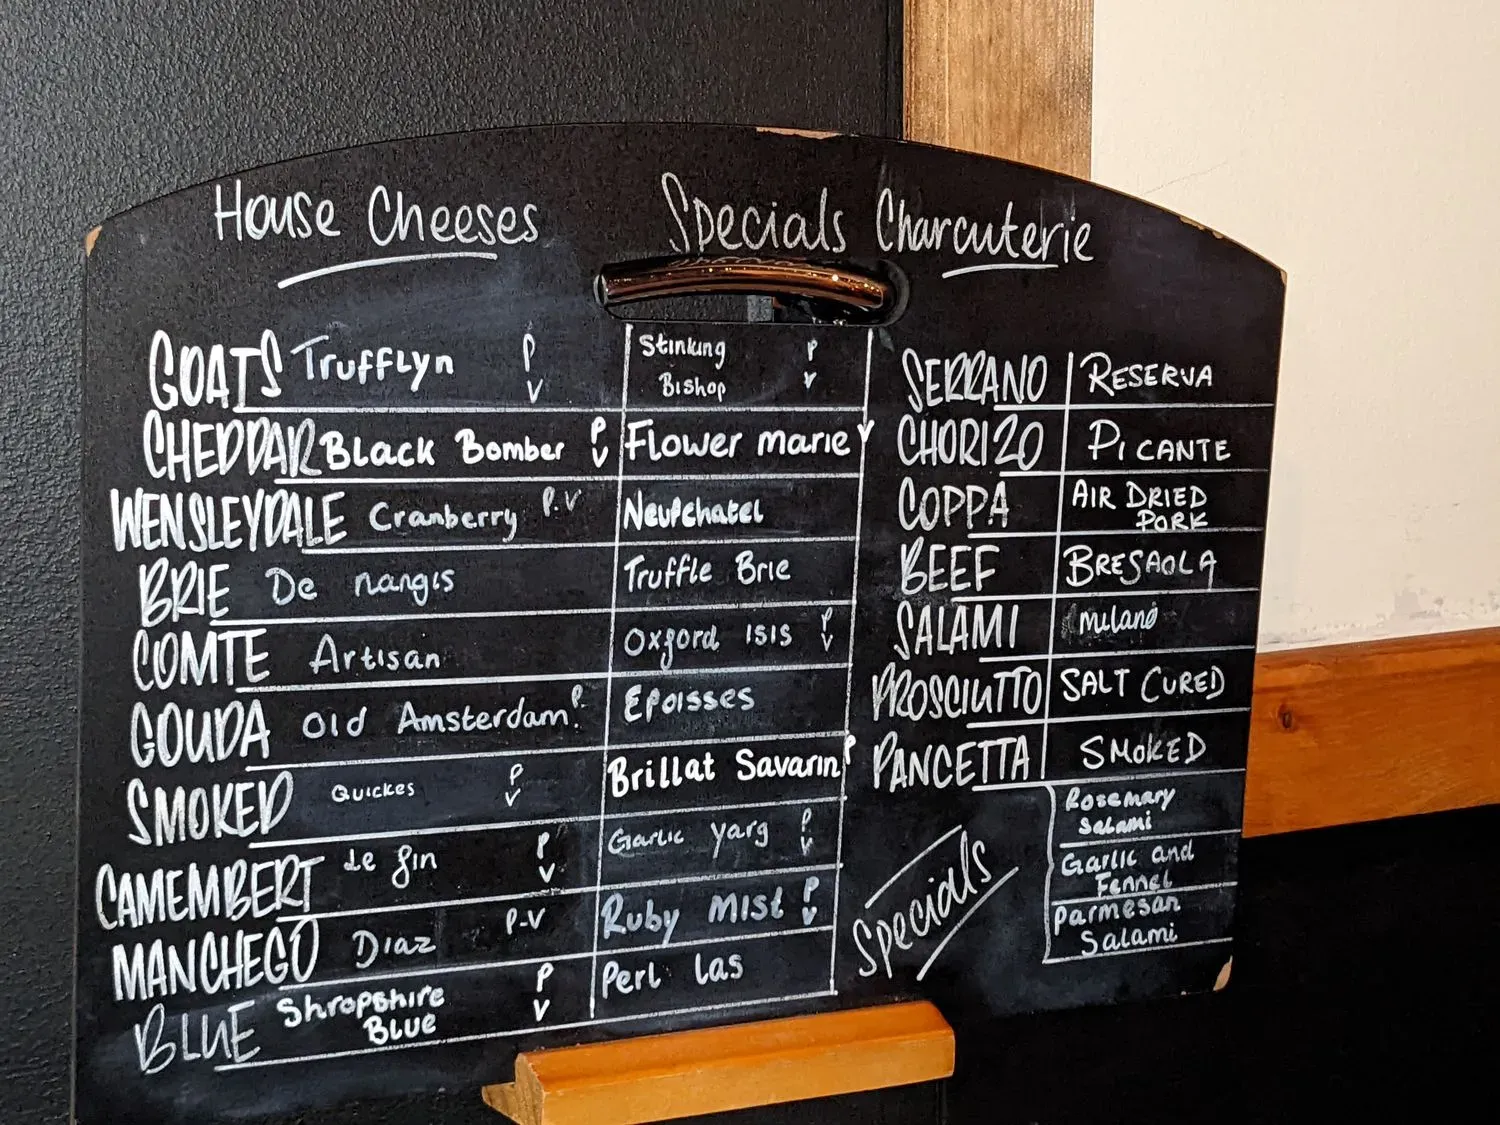 House Cheeses
GOATS Trufflyn P V
CHEDDAR Black Bomber P V
WENSLEYDALE Cranberry P.V
BRIE De nangis
COMTE Artisan
GOUDA Old Amsterdam P.
SMOKED Quickes P V
CAMEMBERT Le fin P V
MANCHEGO Diaz P-V
BLUE Shropshire P V
Blue
Specials
Stinking P
Bishop V
Flower marie V
Neufchatel
Truffle Brie
Oxford ISIS P V
Epoisses
Brillat Savarin P
Garlic Yarg P V
Ruby Mist P V
Perl Las
Charcuterie
SERRANO RESERVA
CHORIZO PICANTE
COPPA AIR DRIED
PORK
BEEF BRESAOLA
SALAMI milano
PROSCIUTTO SALT CURED
PANCETTA SMOKED
Specials
Rosemary
Salami
Garlic and
Fennel
Parmesan
Salami